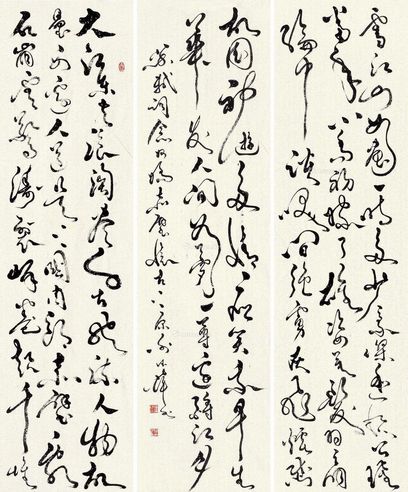 大江東去浪淘盡千古風流人物故
壘西邊人道是三國周郎赤壁亂
石崩雲驚濤裂岸捲起千堆
雪江山如畫一時多少豪傑遙想公瑾
當年小喬初嫁了雄姿英發羽扇
綸巾談笑間強虜灰飛煙滅
故國神遊多情應笑我早生
華髮人間如夢一尊還酹江月
蘇軾詞念奴嬌赤壁懷古